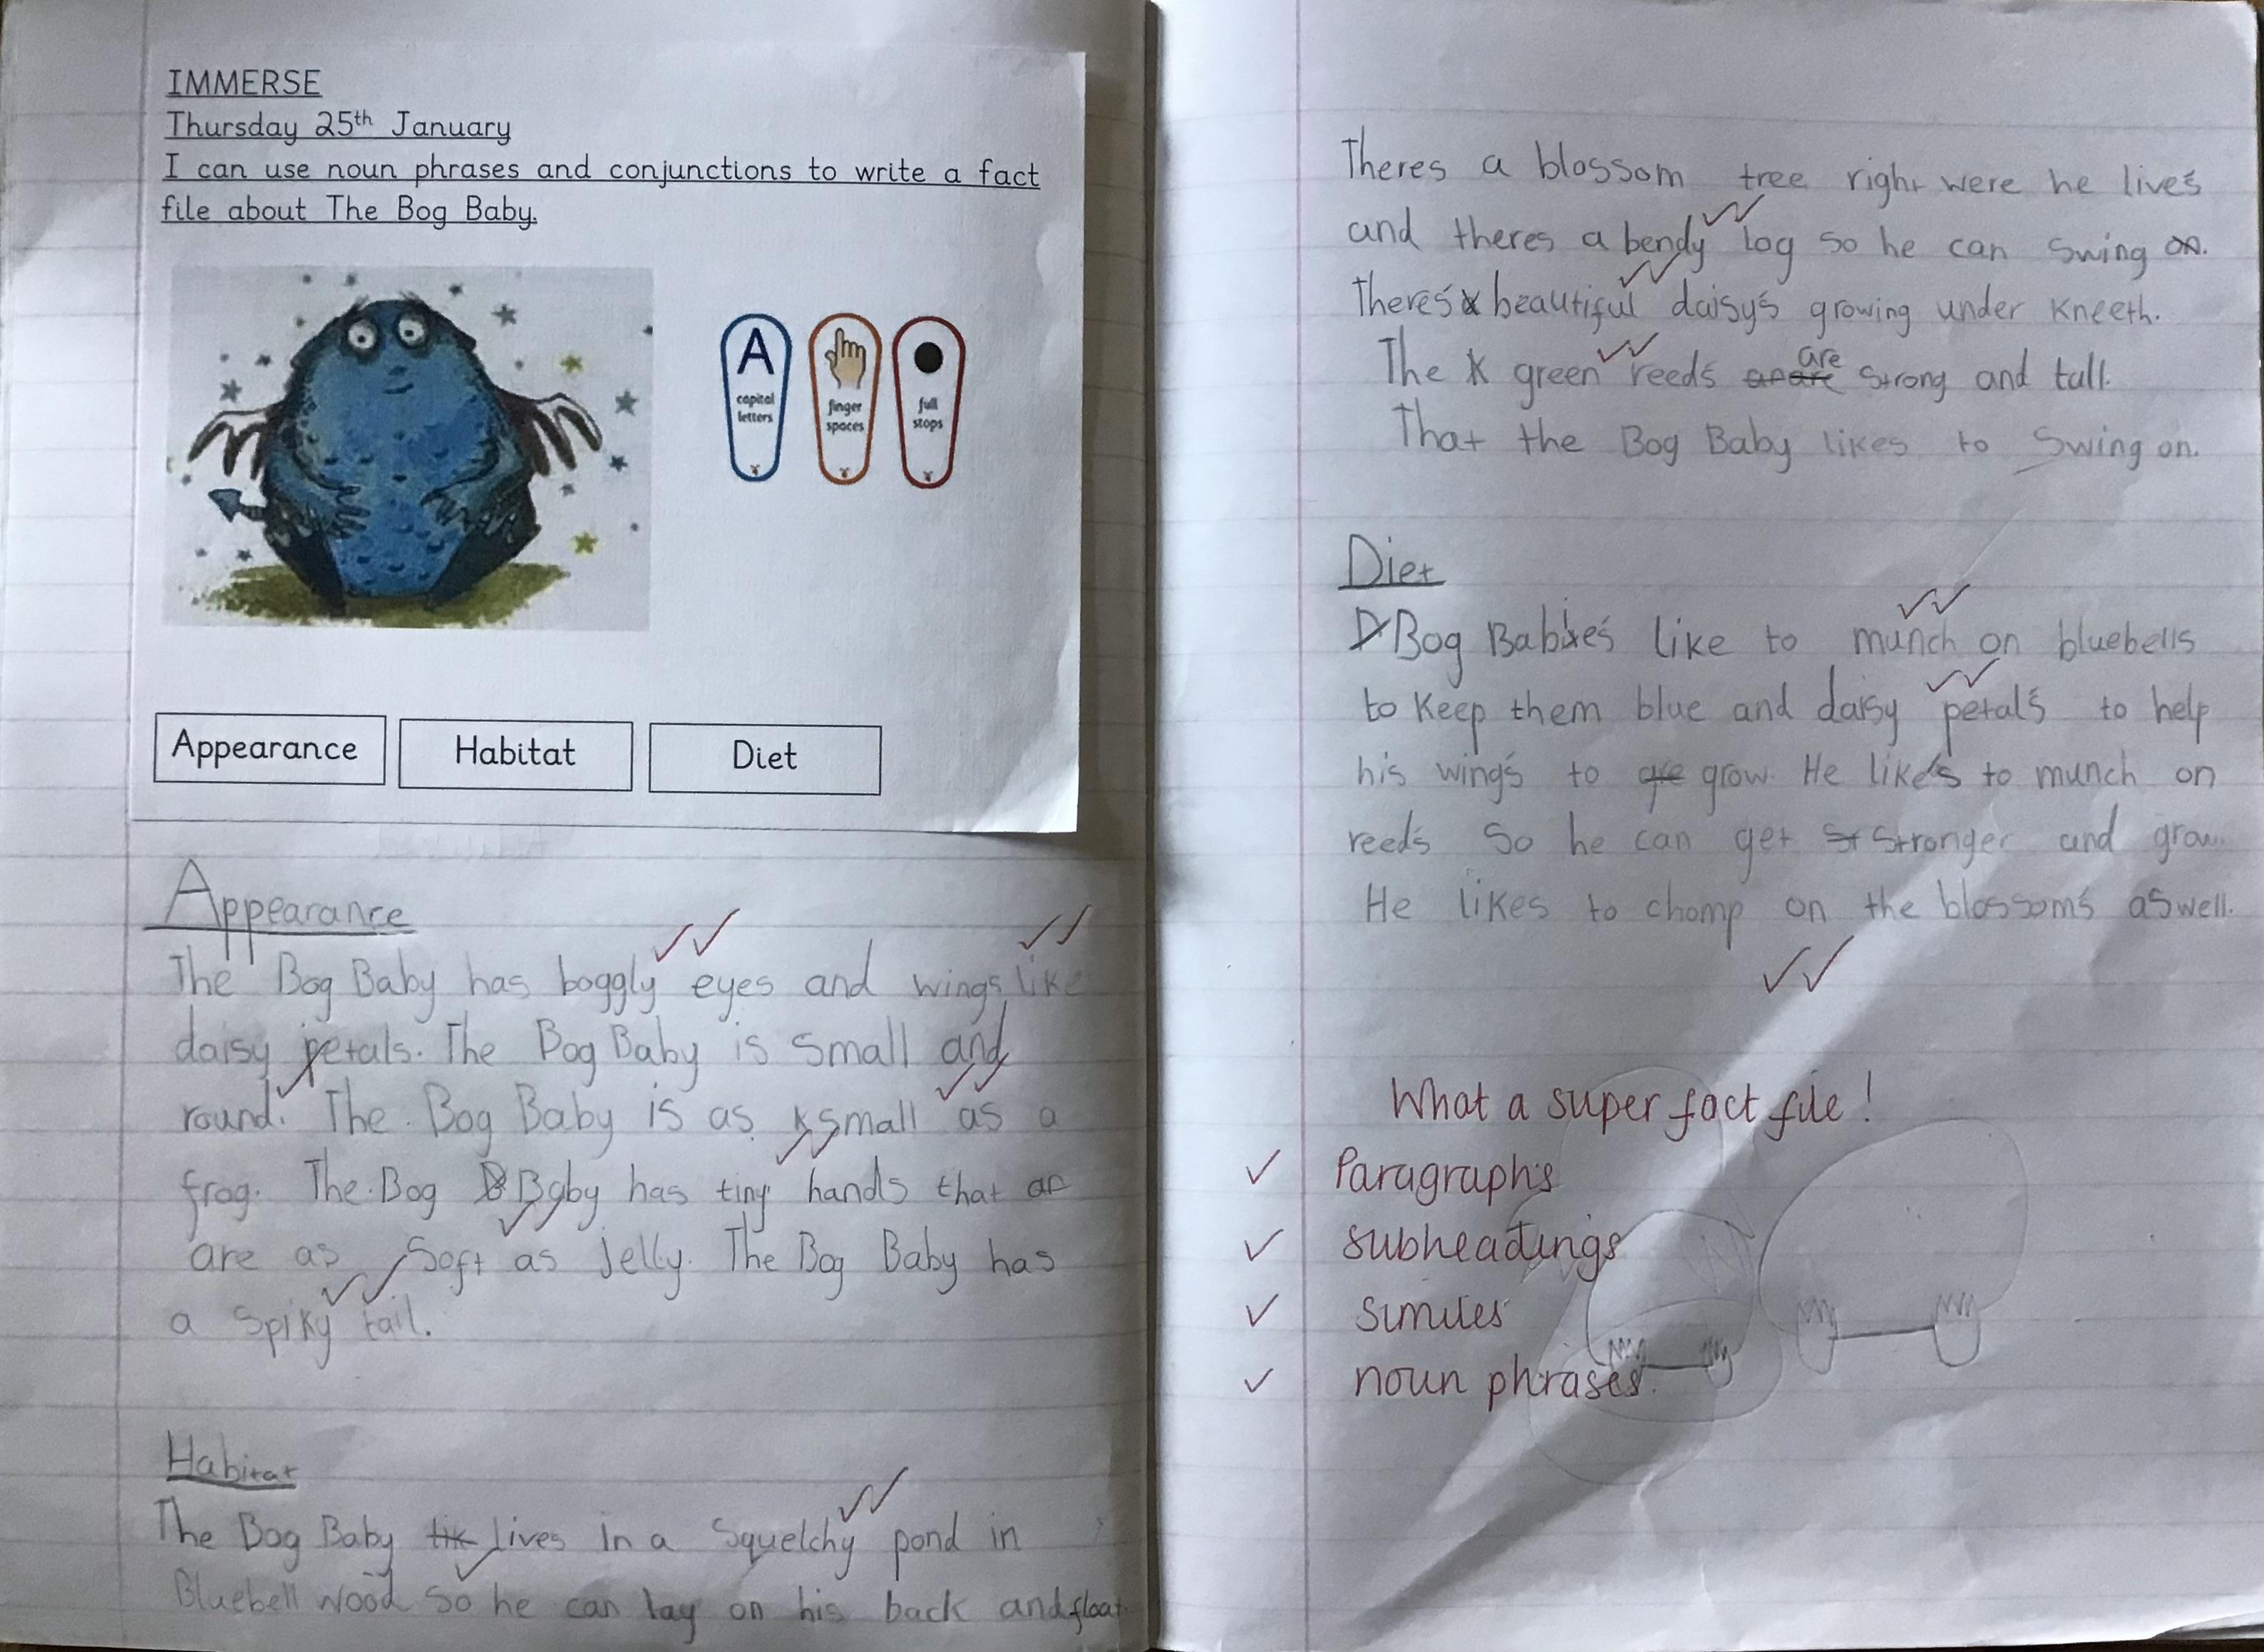 IMMERSE
Thursday 25th January
I can use noun phrases and conjunctions to write a fact
file about The Bog Baby.
A
capital
letters
finger
spaces
full
stops
Appearance
Habitat
Diet
Appearance
The Bog Baby has boggly eyes and wings like
daisy petals. The Bog Baby is small and
round. The Bog Baby is as small as a
frog. The Bog Baby has tiny hands that ar
are as soft as jelly. The Bog Baby has
a spiky tail.
Habitat
The Bog Baby lives in a squelchy pond in
Bluebell wood so he can lay on his back and float
Theres a blossom tree right were he lives
and theres a bendy log so he can swing on.
theres beautiful daisy's growing under kneeth.
The green reeds are strong and tall.
That the Bog Baby likes to swing on.
Diet
Bog Babies like to munch on bluebells
to keep them blue and daisy petals to help
his wings to grow. He likes to munch on
reeds so he can get stronger and grow.
He likes to chomp on the blossoms aswell.
What a super fact file!
✓ Paragraphs
✓ subheadings
✓ similes
✓ noun phrases.